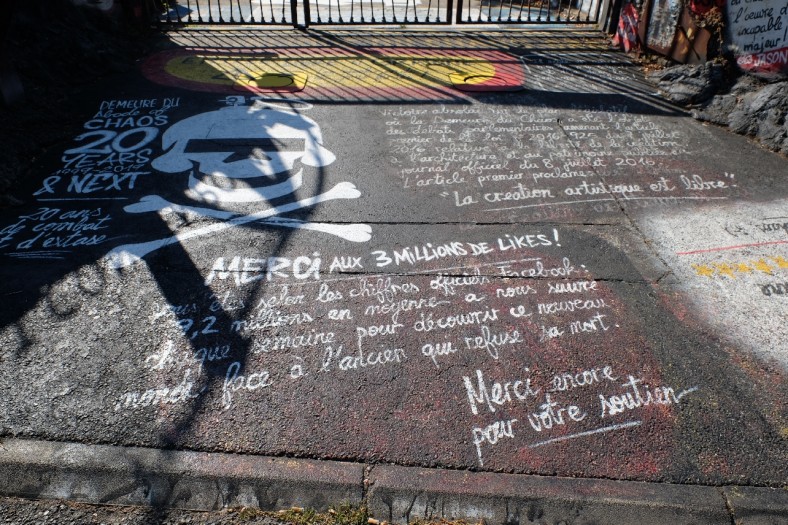 DEMEURE DU
Abode of
CHAOS
20
YEARS
& NEXT
20 ans
de combat
et d'extase
au Demeure du Chaos a été
des débats parlementaires amenant l'article
premier de la loi
relative à la liberté de la création
à l'architecture et au patrimoine
journal officiel du 8 juillet 2016.
L'article premier proclame
"La création artistique est libre".
MERCI AUX 3 MILLIONS DE LIKES !
Vous êtes selon les chiffres officiels Facebook:
9,2 millions en moyenne à nous suivre
chaque semaine pour découvrir ce nouveau
monde face à l'ancien qui refuse sa mort.
Merci encore
pour votre soutien
l'oeuvre d'
incapable
majeur!
JASON